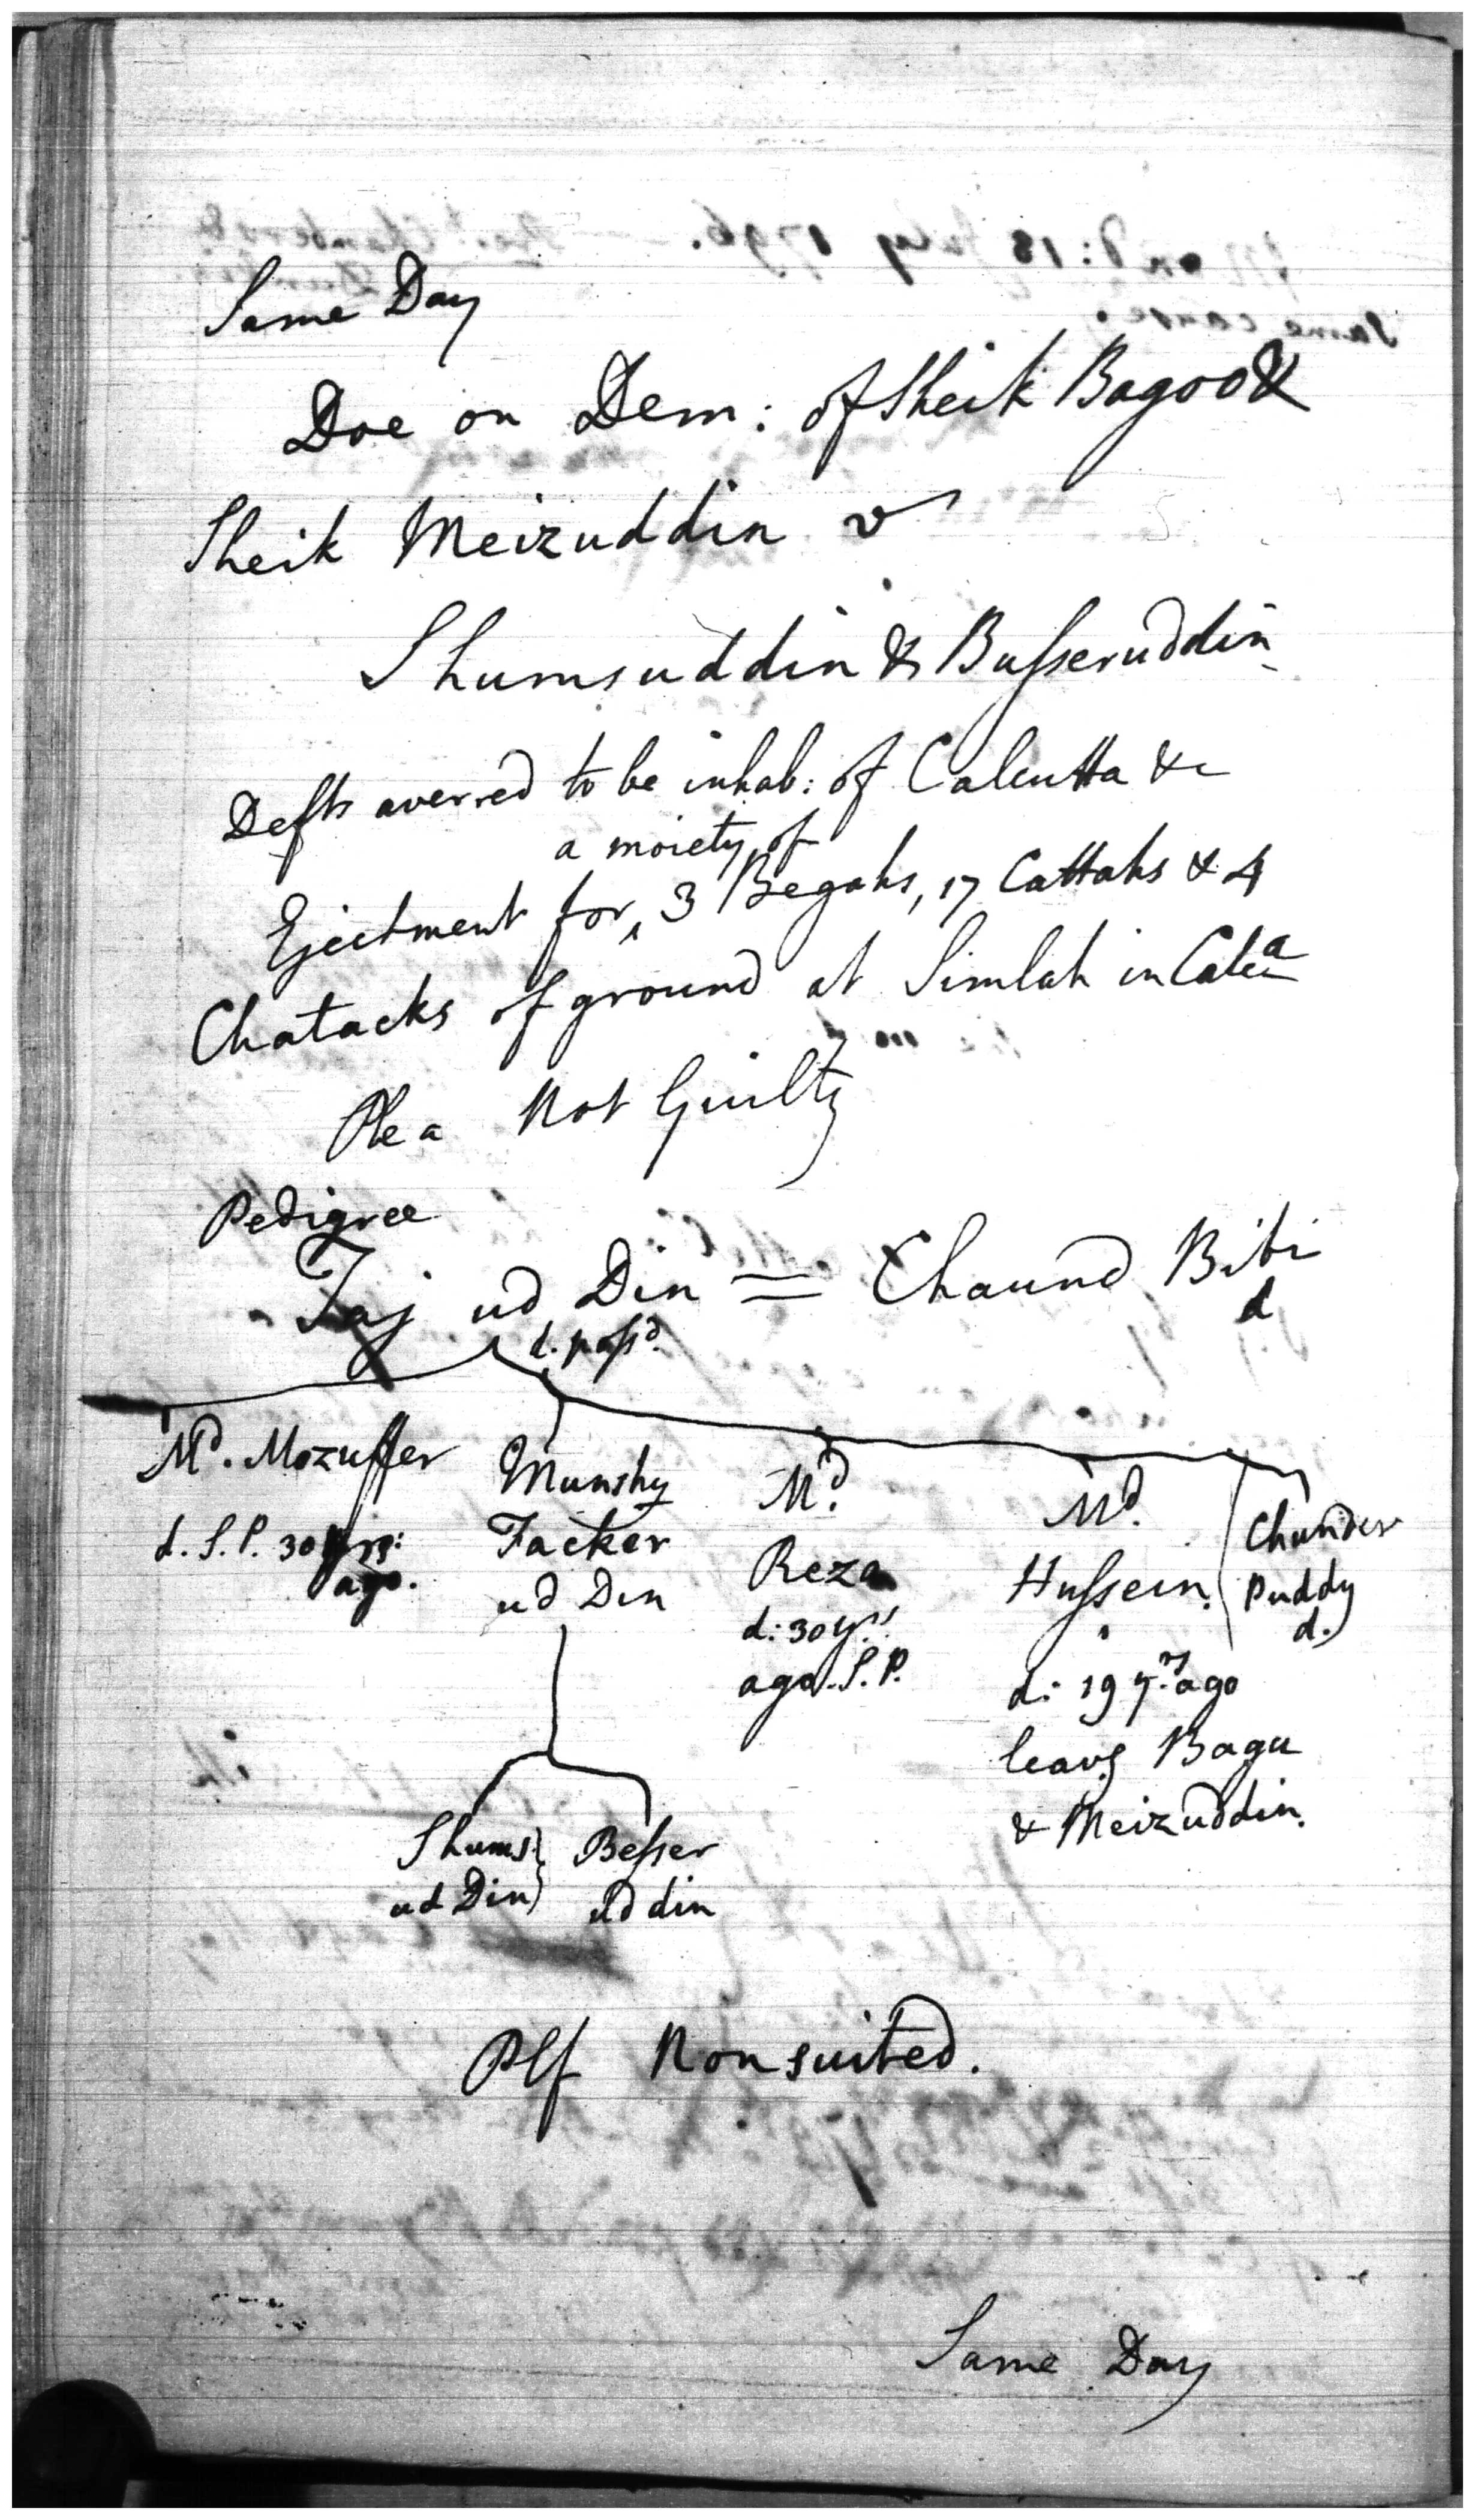 Same Day
Doe on Dem: of Sheik Bagoo &
Sheik Meizuddin v
Shumsuddin & Busseruddin
Defts averred to be inhab: of Calcutta &c
a moiety of
Ejectment for ‸ 3 Begahs, 17 Cattahs & 4
Chatacks of ground at Simlah in Calca
Plea Not Guilty
Pedigree
Taj ud Din = Chaund Bibi
d. possd. d
Md. Mozuffer
d. S. P. 30 yrs:
ago.
Munshy
Facker
ud Din
Md.
Reza
d: 30 yrs.
ago. S. P.
Md.
Hussein.
d: 19 yrs. ago
leavg Bagu
& Meizuddin.
Chunder
Puddy
d.
Shums
ud Din
Besser
ud din
Plf Nonsuited.
Same Day